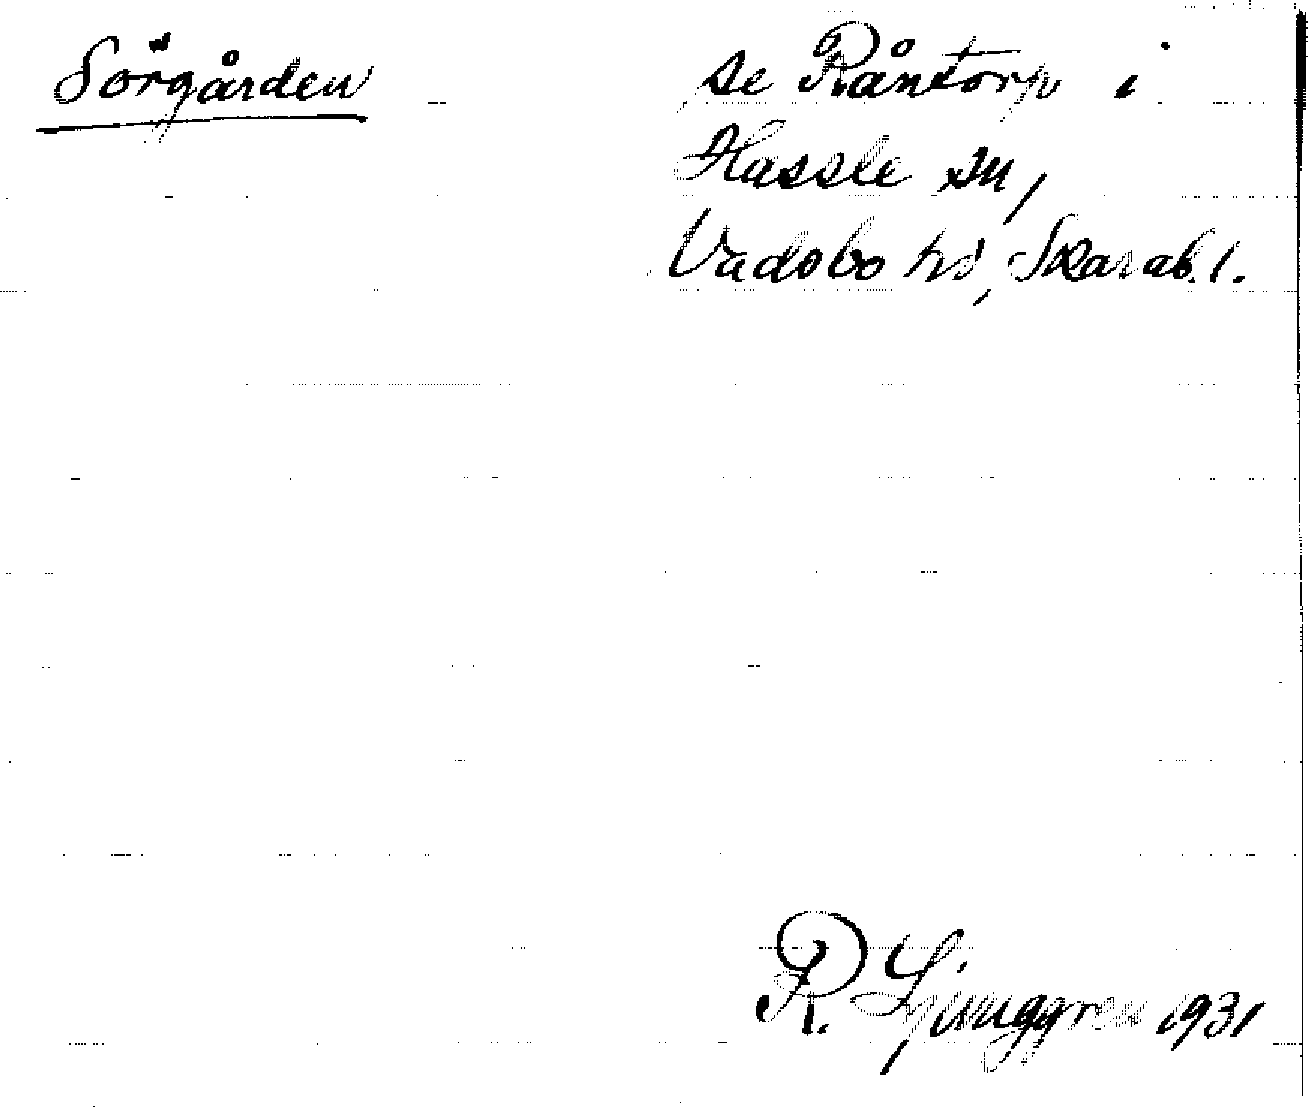 Sörgården
se Råntorp i
Hassle sn,
Vadsbo hd, Skarab. l.
R. Ljunggren 1931